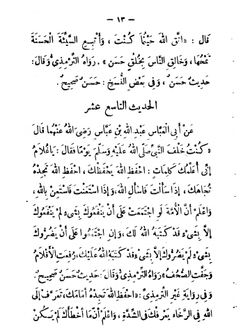 — ١٣ —
قَالَ : «اتَّقِ اللهَ حَيْثُمَا كُنْتَ ، وَأَتْبِعِ السَّيِّئَةَ الْحَسَنَةَ
تَمْحُهَا، وَخَالِقِ النَّاسَ بِخُلُقٍ حَسَنٍ » . رَوَاهُ التِّرْمِذِيُّ وَقَالَ:
حَدِيثٌ حَسَنٌ ، وَفِي بَعْضِ النُّسَخِ : حَسَنٌ صَحِيحٌ .
الحديث التاسع عشر
عَنْ أَبِي الْعَبَّاسِ عَبْدِ اللهِ بْنِ عَبَّاسٍ رَضِيَ اللهُ عَنْهُمَا قَالَ:
«كُنْتُ خَلْفَ النَّبِيِّ صَلَّى اللهُ عَلَيْهِ وَسَلَّمَ يَوْمًا فَقَالَ : يَا غُلَامُ
إِنِّي أُعَلِّمُكَ كَلِمَاتٍ : احْفَظِ اللهَ يَحْفَظْكَ ، احْفَظِ اللهَ تَجِدْهُ
تُجَاهَكَ ، إِذَا سَأَلْتَ فَاسْأَلِ اللهَ ، وَإِذَا اسْتَعَنْتَ فَاسْتَعِنْ بِاللهِ،
وَاعْلَمْ أَنَّ الْأُمَّةَ لَوِ اجْتَمَعَتْ عَلَى أَنْ يَنْفَعُوكَ بِشَيْءٍ لَمْ يَنْفَعُوكَ
إِلَّا بِشَيْءٍ قَدْ كَتَبَهُ اللهُ لَكَ ، وَإِنِ اجْتَمَعُوا عَلَى أَنْ يَضُرُّوكَ
بِشَيْءٍ لَمْ يَضُرُّوكَ إِلَّا بِشَيْءٍ قَدْ كَتَبَهُ اللهُ عَلَيْكَ ، رُفِعَتِ الْأَقْلَامُ
وَجَفَّتِ الصُّحُفُ» رَوَاهُ التِّرْمِذِيُّ وَقَالَ: حَدِيثٌ حَسَنٌ صَحِيحٌ.
وَفِي رِوَايَةِ غَيْرِ التِّرْمِذِيِّ : «احْفَظِ اللهَ تَجِدْهُ أَمَامَكَ، تَعَرَّفْ إِلَى
اللهِ فِي الرَّخَاءِ يَعْرِفْكَ فِي الشِّدَّةِ ، وَاعْلَمْ أَنَّ مَا أَخْطَأَكَ لَمْ يَكُنْ